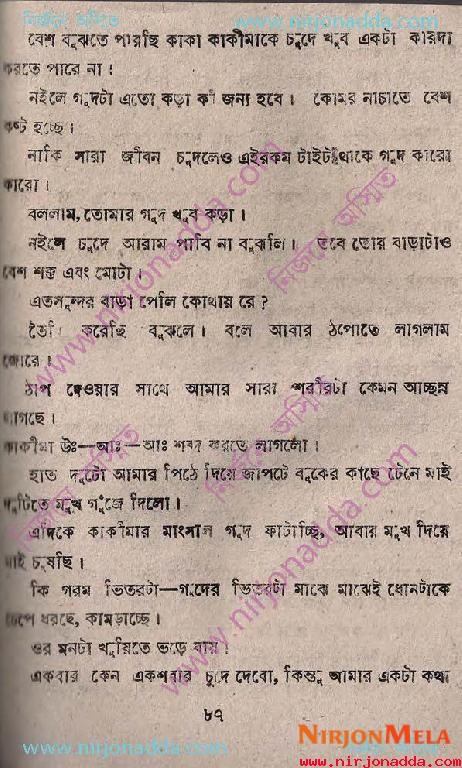 নির্জনে অস্মিত
www.nirjonadda.com
বেশ বুঝতে পারছি কাকা কাকীমাকে চুদে খুব একটা কায়দা
করতে পারে না।
নইলে গুদটা এতো কড়া কী জন্য হবে। কোমর নাচাতে বেশ
কষ্ট হচ্ছে।
নাকি সারা জীবন চুদলেও এইরকম টাইট থাকে গুদ কারো
কারো।
বললাম, তোমার গুদ খুব কড়া।
নইলে চুদে আরাম পাবি না বুঝলি। তবে তোর বাড়াটাও
বেশ শক্ত এবং মোটা।
এতসুন্দর বাড়া পেলি কোথায় রে?
তৈরি করেছি বুঝলে। বলে আবার ঠাপোতে লাগলাম
জোরে।
ঠাপ দেওয়ার সাথে আমার সারা শরীরটা কেমন আচ্ছন্ন
লাগছে।
কাকীমা উঃ—আঃ—আঃ শব্দ করতে লাগলো।
হাত দুটো আমার পিঠে দিয়ে জাপটে বুকের কাছে টেনে মাই
দুটিতে মুখ গুঁজে দিলো।
এদিকে কাকীমার মাংসাল গুদ ফাটাচ্ছি, আবার মুখ দিয়ে
মাই চুষছি।
কি গরম ভিতরটা—গুদের ভিতরটা মাঝে মাঝেই ধোনটাকে
চেপে ধরছে, কামড়াচ্ছে।
ওর মনটা খুশিতে ভরে যায়।
একবার কেন একশবার চুদে দেবো, কিন্তু আমার একটা কথা
৮৭
NIRJONMELA
www.nirjonadda.com
www.nirjonadda.com